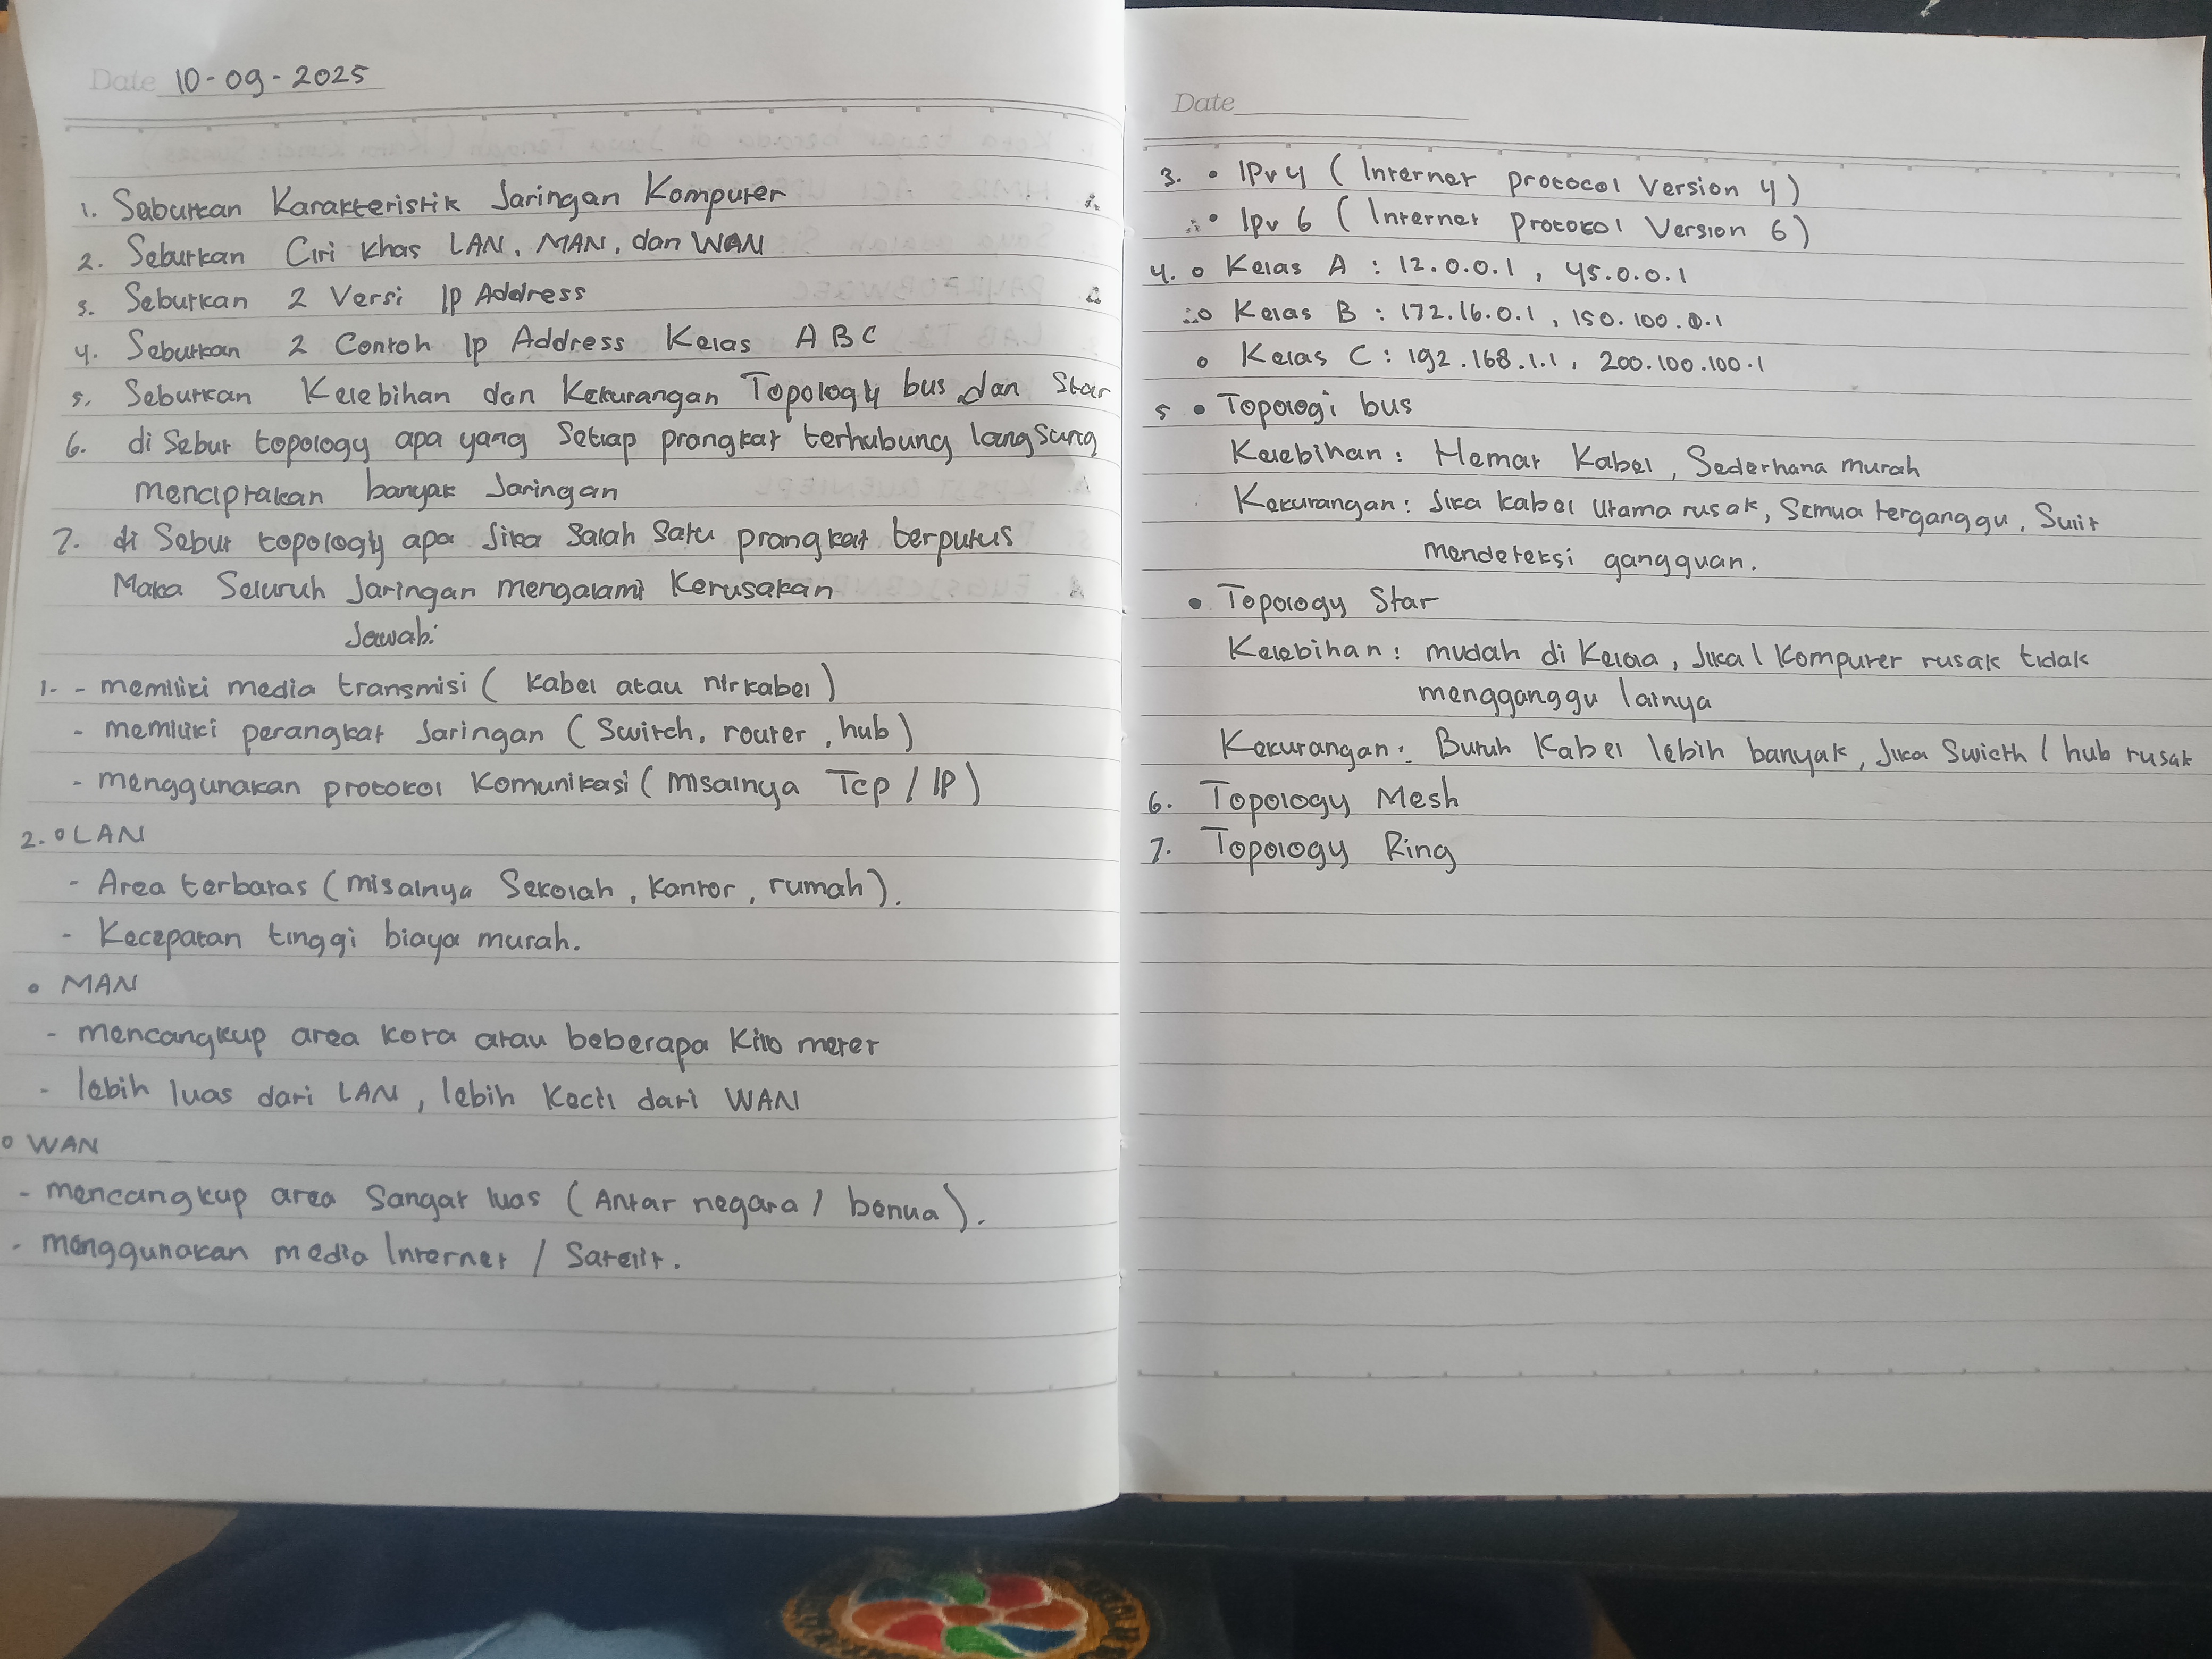 Date 10-09-2025
1. Sebutkan Karakteristik Jaringan Komputer
2. Sebutkan Ciri Khas LAN, MAN, dan WAN
3. Sebutkan 2 Versi Ip Address
4. Sebutkan 2 Contoh Ip Address Kelas A B C
5. Sebutkan Kelebihan dan Kekurangan Topology bus dan Star
6. di Sebut topology apa yang Setiap prangkat terhubung langsung
menciptakan banyak Jaringan
7. di Sebut topology apa Jika Salah Satu prangkat terputus
Maka Seluruh Jaringan mengalami Kerusakan
Jawab:
1. - memiliki media transmisi ( Kabel atau nirkabel )
- memiliki perangkat Jaringan ( Switch, router, hub )
- menggunakan protokol Komunikasi ( misalnya Tcp / IP )
2. o LAN
- Area terbatas ( misalnya Sekolah, Kantor, rumah ).
- Kecepatan tinggi biaya murah.
• MAN
- mencangkup area kota atau beberapa Kilo meter
- lebih luas dari LAN, lebih Kecil dari WAN
o WAN
- mencangkup area Sangat luas ( Antar negara / benua ).
- menggunakan media Internet / Satelit.
Date
3. • IPv4 ( Internet protocol Version 4 )
• Ipv 6 ( Internet protokol Version 6 )
4. o Kelas A : 12.0.0.1 , 45.0.0.1
o Kelas B : 172.16.0.1 , 150.100.0.1
o Kelas C : 192.168.1.1 , 200.100.100.1
5 • Topologi bus
Kelebihan : Hemat Kabel, Sederhana murah
Kekurangan : Jika kabel Utama rusak, Semua terganggu, Sulit
mendeteksi gangguan.
• Topology Star
Kelebihan : mudah di Kelola, Jika 1 Komputer rusak tidak
mengganggu lainya
Kekurangan : Butuh Kabel lebih banyak, Jika Swicth / hub rusak
6. Topology Mesh
7. Topology Ring